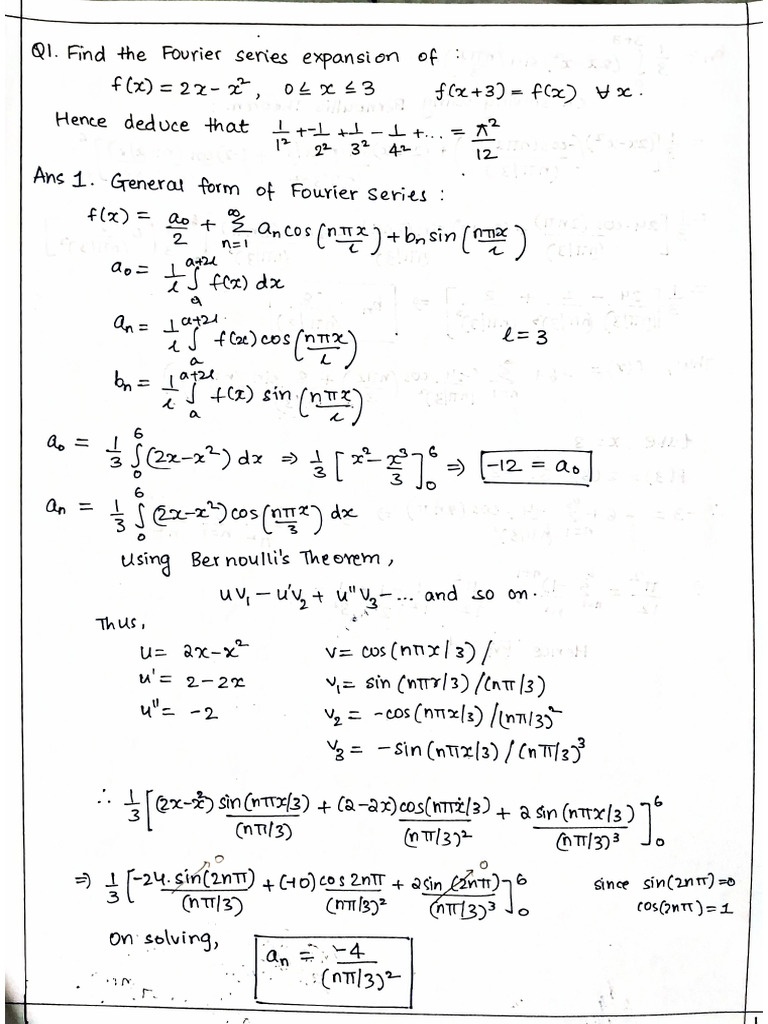 Q1. Find the Fourier series expansion of :
f(x) = 2x - x², 0 ≤ x ≤ 3 f(x+3) = f(x) ∀ x.
Hence deduce that 1/1² + -1/2² + 1/3² - 1/4² + ... = π²/12
Ans 1. General form of Fourier Series :
f(x) = a₀/2 + Σ_{n=1}^{∞} aₙ cos (nπx/l) + bₙ sin (nπx/l)
a₀ = 1/l ∫_a^{a+2l} f(x) dx
aₙ = 1/l ∫_a^{a+2l} f(x) cos (nπx/l) l = 3
bₙ = 1/l ∫_a^{a+2l} f(x) sin (nπx/l)
a₀ = 1/3 ∫_0^6 (2x-x²) dx ⇒ 1/3 [x² - x³/3]_0^6 ⇒ -12 = a₀
aₙ = 1/3 ∫_0^6 (2x-x²) cos (nπx/3) dx
Using Bernoulli's Theorem,
uv₁ - u'v₂ + u''v₃ - ... and so on.
Thus,
u = 2x-x² v = cos(nπx/3) /
u' = 2-2x v₁ = sin (nπx/3) /(nπ/3)
u'' = -2 v₂ = -cos(nπx/3) /(nπ/3)²
v₃ = -sin(nπx/3) / (nπ/3)³
∴ 1/3 [(2x-x²) sin(nπx/3)/(nπ/3) + (2-2x) cos(nπx/3)/(nπ/3)² + 2 sin (nπx/3)/(nπ/3)³]_0^6
⇒ 1/3 [-24. sin(2nπ)/(nπ/3) 0 + (-10) cos 2nπ/(nπ/3)² + 2sin (2nπ)/(nπ/3)³ 0]_0^6 since sin(2nπ)=0
cos(2nπ)=1
On solving, aₙ = -4/(nπ/3)²